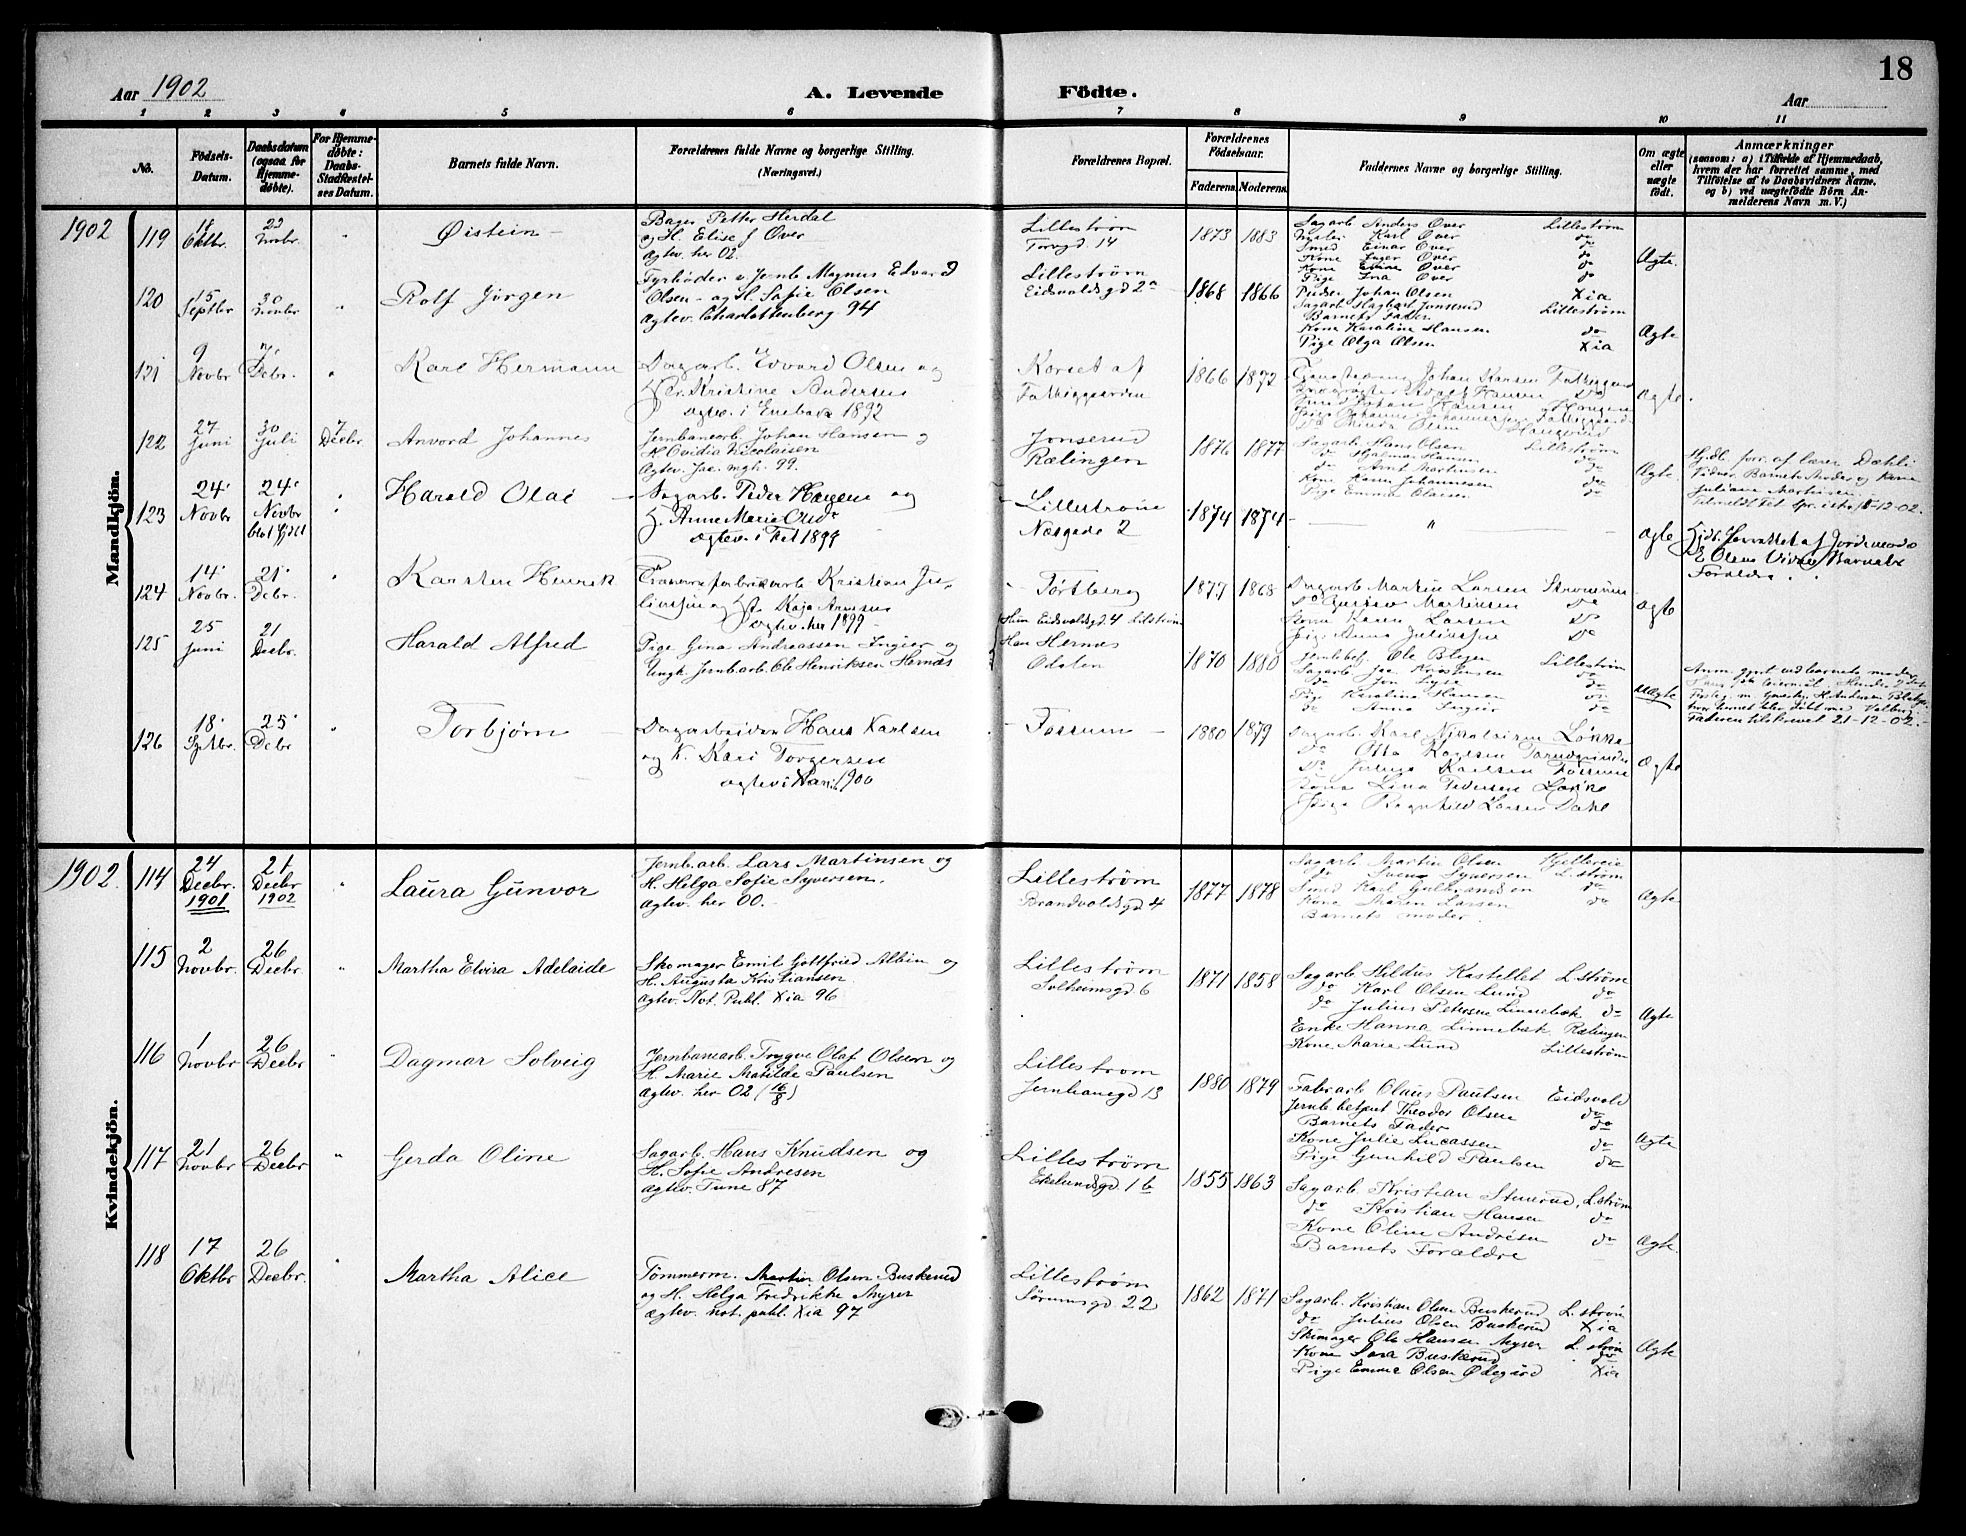 18
Aar 1902 A. Levende Födte. Aar
1 2 3 4 5 6 7 8 9 10 11
No. Födsels-Datum. Daabsdatum (ogsaa for Hjemme-döbte). For Hjemme-döbte: Daabs-Stadfæstel-ses Datum. Barnets fulde Navn. Forældrenes fulde Navne og borgerlige Stilling. (Næringsvei.) Forældrenes Bopæl. Forældrenes Födselsaar. Faderens. Moderens. Faddernes Navne og borgerlige Stilling. Om ægte eller uægte födt. Anmærkninger (saasom: a) i Tilfælde af Hjemmedaab, hvem der har forrettet samme, med Tilföielse af to Daabsvidners Navne, og b) ved uægtefödte Börn An-melderens Navn m. V.)
Mandkjön.
1902 119 Oktbr. 23 Novbr. Øistein Bager Petter Herdal
og H. Elise f Over
Ægtev. her 02.
Lillestrøm
Torvgd. 14
1873 1883
Sagarb. Anders Over Lillestrøm
Karl Over do
Smed Einar Over do
Kone Inger Over do
Kone Over do
Pige Ina Over do
Ægte.
120 15 Septbr 30 Novbr Rolf Jørgen
Fyrbøder v. Jernb. Magnus Edvard
Olsen og H. Sofie Olsen
Ægtev. Charlottenberg 94
Lillestrøm
Eidsvoldsgd 2a
1868 1866
Johan Olsen Xia
Sagarb. Hagbart Jonsrud Lillestrøm
Barnets Fader
Kone Karoline Hansen do
Pige Olga Olsen Xia
Ægte
121 9 Novbr 7/ Debr. Karl Hermann
Dagarb. Edvard Olsen og
Kristine Andersen
ægtev. i Enebak 1892
Korset af
Fattiggaarden
1866 1872
Johan Hansen
ægte.
122 27 Juni 30 Juli 7 Decbr. Anvord Johannes
Jernbanearb. Johan Hansen og
H. Ovidia Nicolaisen
Ægtev. Jac. mgh. 99.
Jonserud
Rælingen
1876 1877
Sagarb. Hans Olsen Lillestrøm
do Hjalmar Hansen do
do Arnt Martinsen do
Kone Karen Johannesen do
Pige Emma Olausen do
Ægte
Hjdb. forr. af lærer Dæhli
Vidner Barnets Moder og Kone
Juliane Martinsen.
123 24 Novbr 24 Novbr Harald Olai
Sagarb. Peder Hagen og
Anne Marie Olsdr
ægtev. i Fet 1899
Lillestrøm
Næsgade 2
1874 1874
ægte
Hjdb. forrettet af Jordmoder
E Olsen Vidner Barnets
Forældre.
124 14 Novbr. 21 Debr. Karsten Henrik
Kristian Ju-
liussen og Kaja Arnesen
ægtev. her 1899
Tørtberg
1877 1868
Dagarb. Martin Larsen Strømmen
do Gustav Martinsen do
Kone Karen Larsen do
Pige Anna Juliussen do
ægte
125 25 Juni 21 Decbr. Harald Alfred
Pige Gina Andreassen Ingier og
Ungk. Jernbarb. Ole Henriksen Hernæs
Hun Eidsvoldsgd. 4 Lilstrøm
Han Hernæs
Odalen
1870 1880
Jernbbetj. Ole Berger Lillestrøm
Sagarb. Jac Kristensen do
do Jon Lyse do
Pige Karoline Hansen do
do Anna Ingier do
Uægte
Faderen tilskrevet 21-12-02.
126 18 Sptbr. 25 Debr Torbjørn
Dagarbeider Hans Karlsen
og K. Kari Torgersen
ægtev i 1900
Fossum
1880 1879
Dagarb. Karl Nikolaisen Løkke
do Otto Karlsen
do Julius Karlsen Fossum
Kone Lina Pedersen Løkke
Pige Ragnhild Larsen Dahl
Ægte
Kvindekjön.
1902. 114 24 Decbr. 1901 21 Decbr 1902 Laura Gunvor
Jernb.arb. Lars Martinsen og
H. Helga Sofie Syversen.
Ægtev. her 00.
Lillestrøm
Brandvoldsgd 4
1877 1878
Sagarb Martin Olsen
do Svend Syversen L.strøm
Smed Karl Gulbrandsen do
Kone Maren Larsen do
Barnets moder.
Ægte
115 2 Novbr. 26 Decbr. Martha Elvira Adelaide
Skomager Emil Gottfried Albin og
H. Augusta Kristiansen
Ægtev. Not. Publ. Xia 96
Lillestrøm
Solheimsgd 6
1871 1858
Sagarb. Heldus Kastellet L.strøm
do Karl Olsen Lund do
do Julius Petersen Linnebæk do
Enke Hanna Linnebæk Rælingen
Kone Marie Lund Lillestrøm
Ægte
116 1 Novbr 26 Decbr Dagmar Solveig
Jernbanearb. Trygve Olaf Olsen og
H. Marie Matilde Paulsen
Ægtev. her 02 (16/8)
Lillestrøm
Jernbanegd 13
1880 1879
Fabr.arb Olaus Paulsen Eidsvold
Jernb. betjent Theodor Olsen do
Barnets Fader do
Kone Julie Lucassen do
Pige Gunhild Paulsen do
Ægte
117 21 Novbr 26 Decbr Gerda Oline
Sagarb. Hans Knudsen og
H. Sofie Andresen
Ægtev. Tune 87
Lillestrøm
Ekelundsgd. 1 b
1855 1863
Sagarb. Kristian Stuerud, L.strøm
do Kristian Hansen do
Kone Oline Andresen do
Barnets Forældre
Ægte.
118 17 Oktbr 26 Decbr. Martha Alice
Tömmerm. Martin Olsen Buskerud
og H. Helga Fredrikke Myrer
Ægtev. not. publ. Xia 97
Lillestrøm
Sørumsgd. 22
1862 1871
Sagarb. Kristian Olsen Buskerud L.strøm
do Julius Olsen Buskerud Xia
Skomager Ole Hansen Myrer L.strøm
Kone Sara Buskerud do
Pige Emma Olsen Ødegård Xia
Ægte